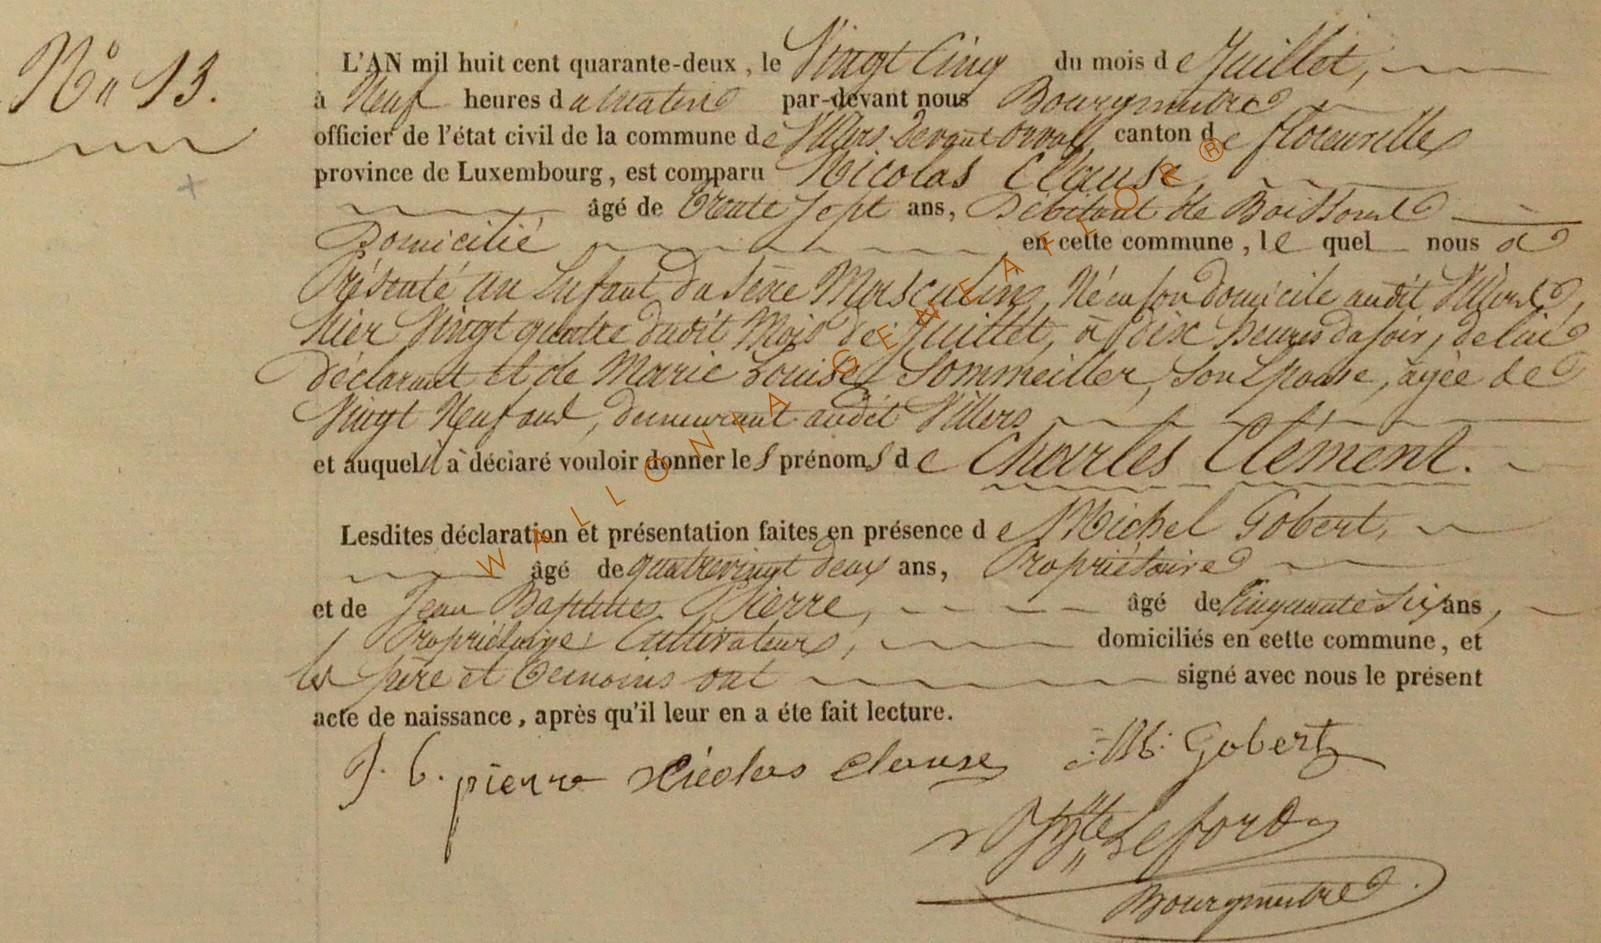 N° 13.
L'AN mil huit cent quarante-deux, le Vingt Cinq du mois de Juillet,
à Neuf heures du matin par-devant nous Bourgmestre
officier de l'état civil de la commune de Villers devant orval, canton de florenville
province de Luxembourg, est comparu Nicolas Clause,
âgé de Trente Sept ans, Débitant de Boissons
Domicilié en cette commune, le quel nous a
Présenté un Enfant du sexe Masculin, Né en son domicile audit Villers,
hier Vingt quatre dudit Mois de Juillet, à dix heures du soir, de lui
déclarant et de Marie Louise Sommeiller, son Epouse, agée de
Vingt Neuf ans, demeurant audit Villers
et auquel il a déclaré vouloir donner les prénoms de Charles Clément.
Lesdites déclaration et présentation faites en présence de Michel Gobert,
âgé de quatrevingt deux ans, Propriétaire
et de Jean Baptiste Pierre, âgé de Cinquante Six ans,
Propriétaire Cultivateurs, domiciliés en cette commune, et
les père et temoins ont signé avec nous le présent
acte de naissance, après qu'il leur en a éte fait lecture.
J. b. pierre Nicolas Clause M: Gobert
Hyte Leford
Bourgmestre
WALLONIA GENEAFLOR®